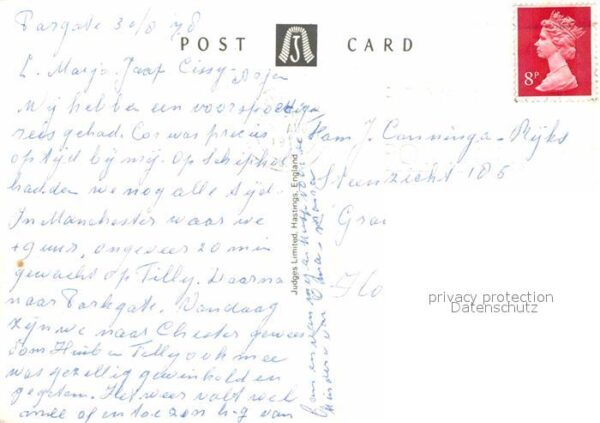 Pargate 30/8 78
POST CARD
8P
L. Marjo. Jaap Cissy
Wij hebben een voorspoedige
reis gehad. Cor was precies
op tijd bij mij. Op Schiphol
hadden we nog alle tijd.
In Manchester waar we
+ 9 uur, ongeveer 20 min
gewacht op Tilly. Daarna
naar Parkgate. Vandaag
zijn we naar Chester geweest
Tilly ook mee
was gezellig gewinkeld en
gegeten. Het weer valt wel
mee af en toe zon
Fam J. Canninga-Rijks
Steenzicht 186
Judges Limited, Hastings, England
privacy protection
Datenschutz